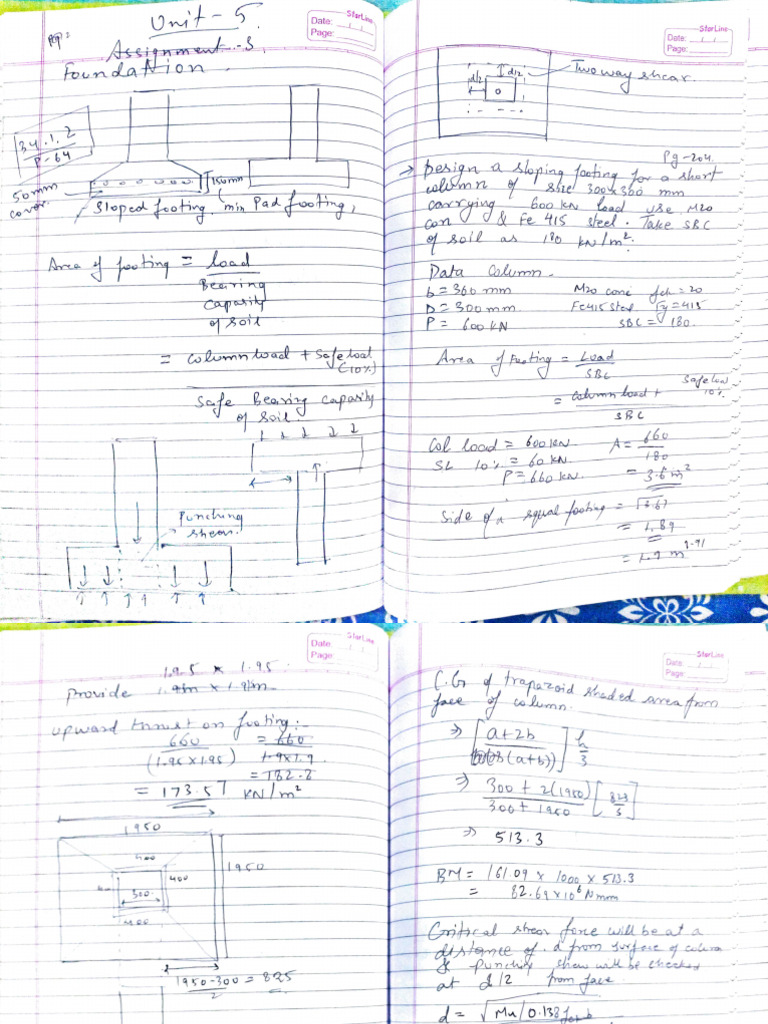 Unit - 5
StarLine
Date:
Page:
Assignment - 5
Foundation.
34.1.2
P-64
50mm
cover
150mm
(min
Sloped footing. Pad footing,
Area of footing = Load
Bearing
Capacity
of soil
= Column load + Safe load
(10%)
Safe Bearing Capacity
of soil.
Punching
shear
StarLine
Date:
Page:
d/2
d/2
Two way shear.
Pg-204.
→ Design a sloping footing for a short
column of size 300x300 mm
carrying 600 KN load use M20
con & Fe 415 steel. Take SBC
of soil as 180 KN/m².
Data Column.
b = 300 mm M20 conc fck = 20
D = 300 mm Fe415 Steel Fy = 415
P = 600 KN SBC = 180.
Area of Footing = Load
SBC
= Column load + Safe load 10%
SBC
Col load = 600 KN A = 660
180
SL 10% = 60 KN
P = 660 KN. = 3.6 m²
Side of a squal footing = √3.67
= 1.89
1.91
= 1.9 m
StarLine
Date:
Page:
1.95 x 1.95
Provide 1.9m x 1.9m
upward thrust on footing:-
660 = 660
(1.95 x 1.95) 1.9x1.9
= 182.8
= 173.57 KN/m²
1950
400
400
300
400
1950
1950-300 = 825
2
StarLine
Date:
Page:
C.G of trapazoid shaded area from
face of column.
⇒ [a+2b
(a+b)] h
3
⇒ 300 + 2(1950) [825
300 + 1950 3]
⇒ 513.3
BM = 161.09 x 1000 x 513.3
= 82.69 x 10⁶ Nmm
Critical shear force will be at a
distance of d from surface of column
& punching shear will be checked
at d/2 from face.
d = √Mu/0.138 fck b